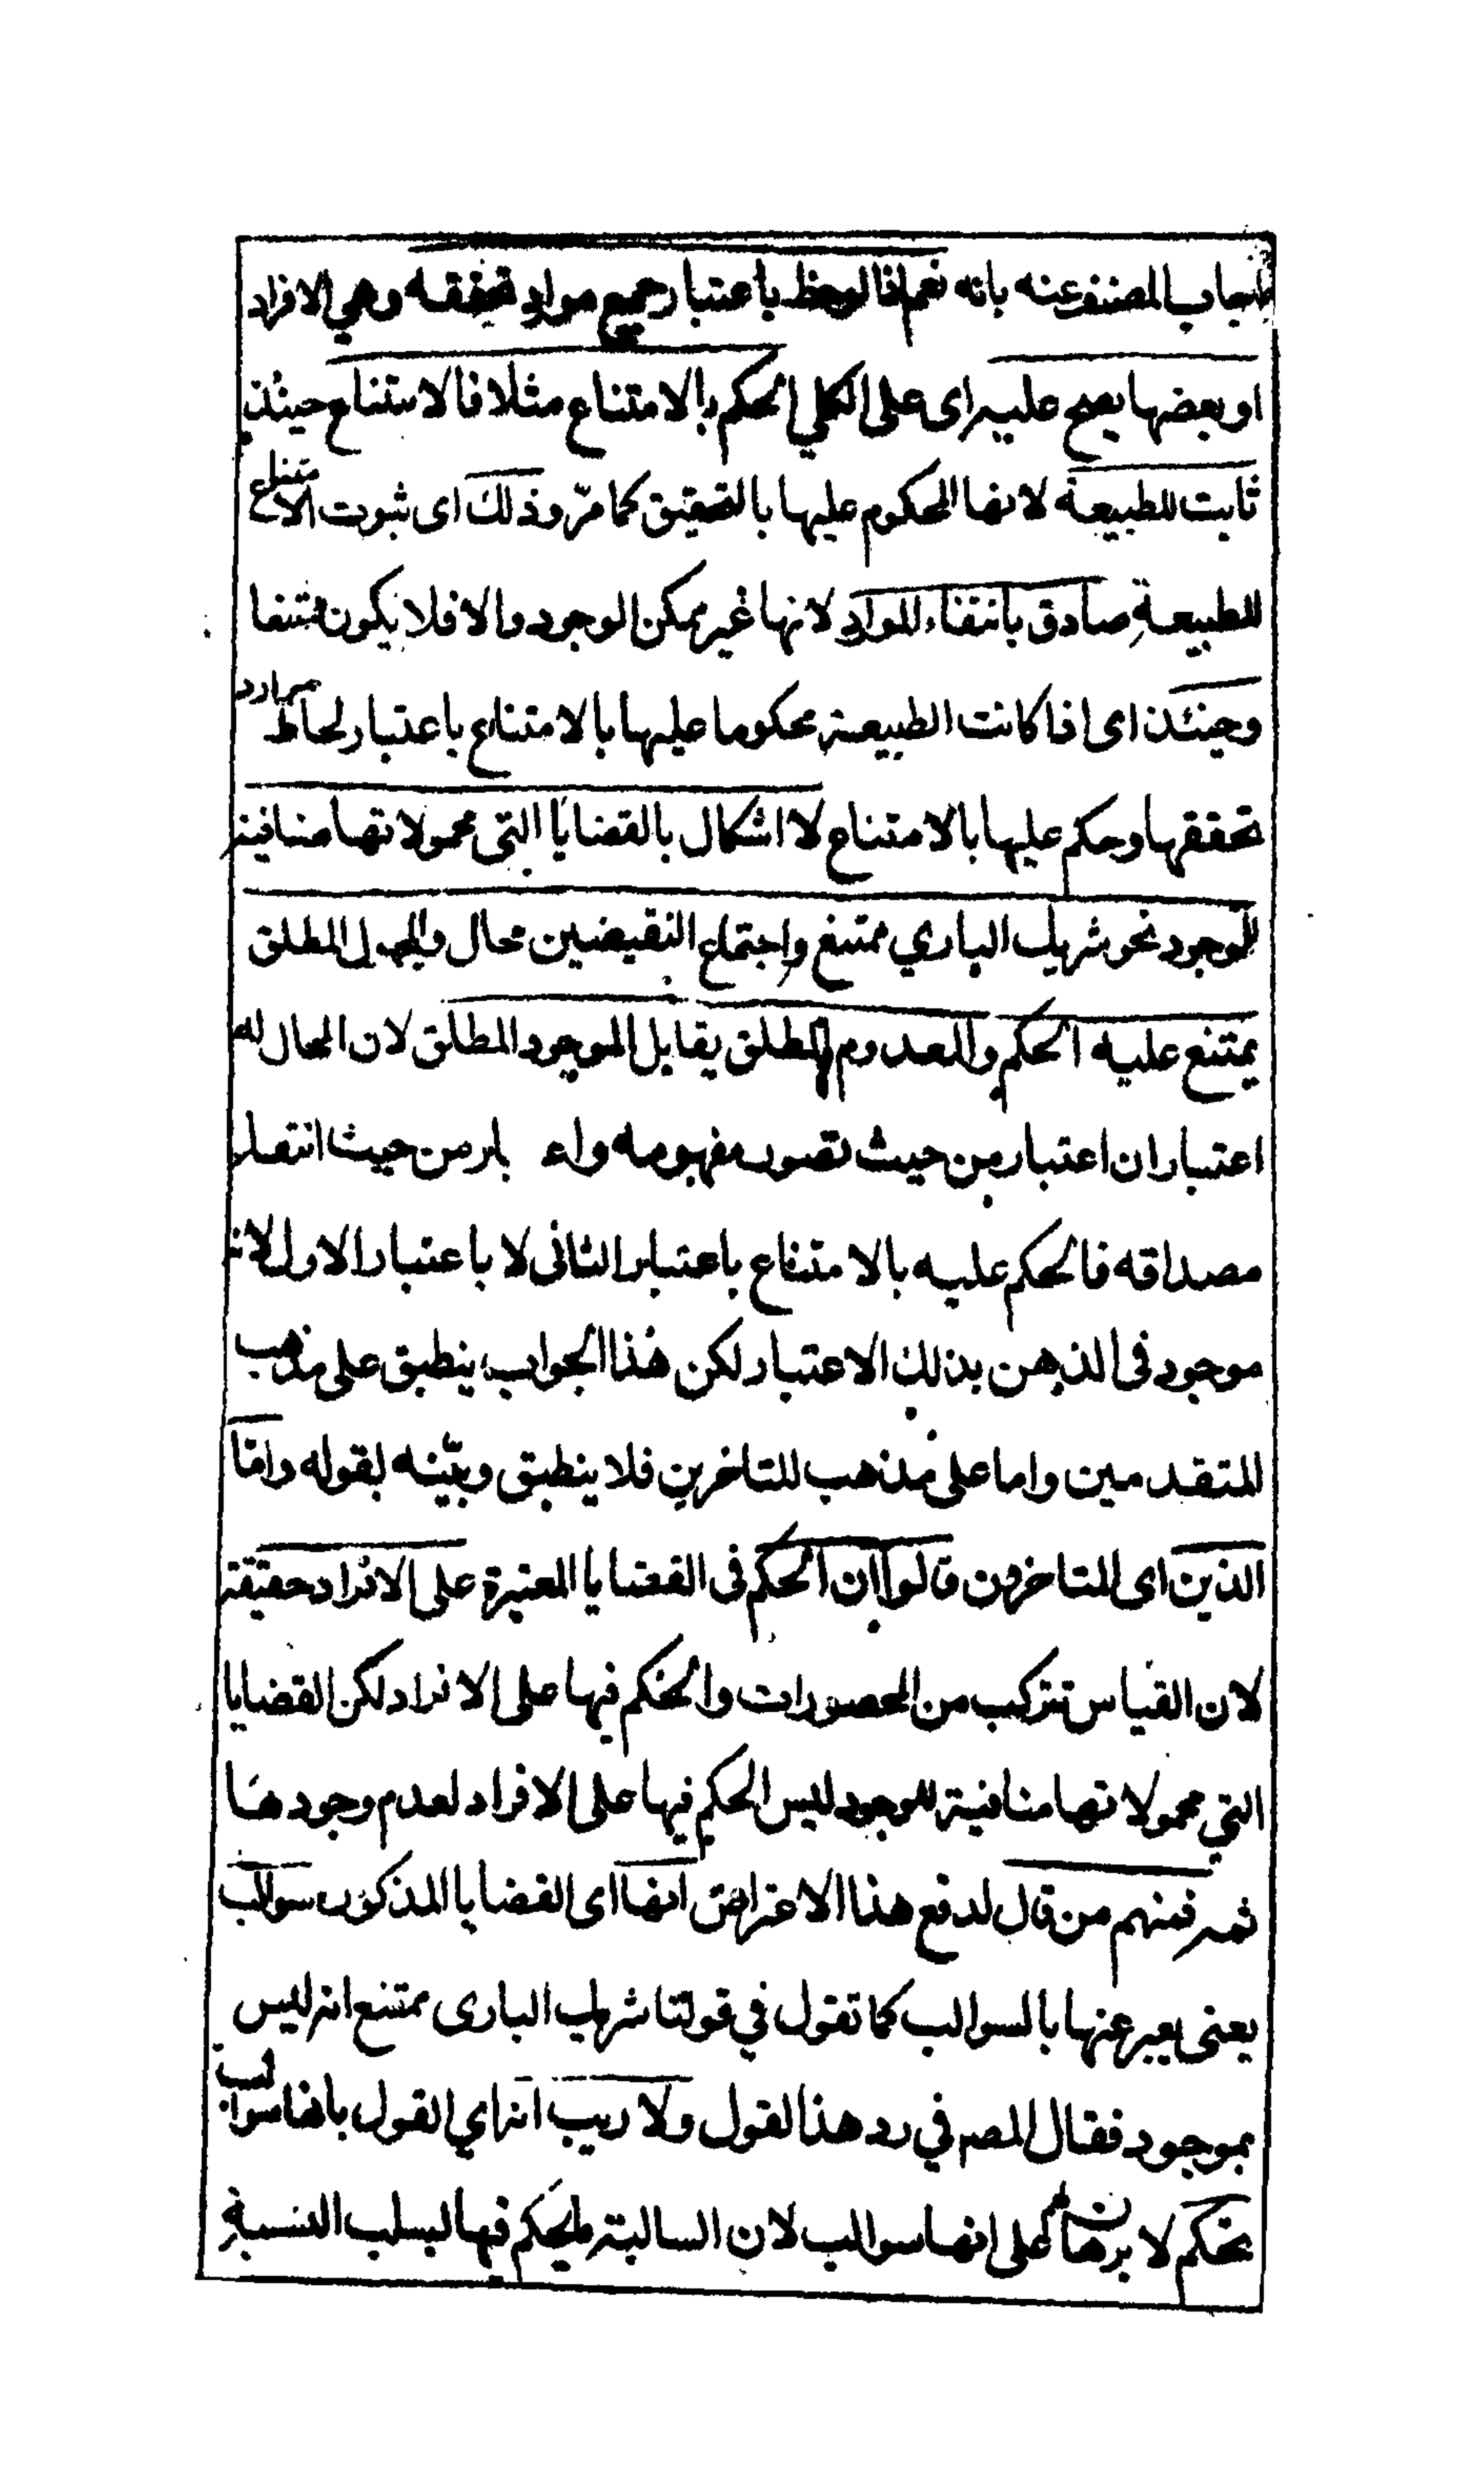 فاجاب المصنف عنه بانه نعم اذا لوحظ باعتبار جميع موارد تحققه وهي الافراد
او بعضها يصح عليه اى على الكلي الحكم بالامتناع مثلا فالامتناع حينئذ
ثابت للطبيعة لانها المحكوم عليها بالتحقيق كما مرّ وذلك اى ثبوت الامتناع
للطبيعة صادق بانتفاء الموارد لانها غير ممكن الوجود والا فلا يكون ممتنعا
وحينئذ اى اذا كانت الطبيعة محكوما عليها بالامتناع باعتبار لحاظ موارد
تحققها وحكم عليها بالامتناع لا اشكال بالقضايا التى محمولاتها منافية
للوجود نحو شريك الباري ممتنع واجتماع النقيضين محال والمجهول المطلق
يمتنع عليه الحكم والمعدوم المطلق يقابل الموجود المطلق لان المحال له
اعتباران اعتبار من حيث تصور مفهومه و من حيث انتفاء
مصداقه فالحكم عليه بالامتناع باعتبار الثانى لا باعتبار الاول لانه
موجود فى الذهن بذلك الاعتبار لكن هذا الجواب ينطبق على مذهب
المتقدمين واما على مذهب المتاخرين فلا ينطبق وبيّنه بقوله وامّا
الذين اى المتاخرون قالوا ان الحكم فى القضايا المعتبرة على الافراد حقيقة
لان القياس تتركب من المحصورات والحكم فيها على الافراد لكن القضايا
التي محمولاتها منافية للوجود ليس الحكم فيها على الافراد لعدم وجودها
ثمه فمنهم من قال لدفع هذا الاعتراض انها اى القضايا المذكور سوالب
يعنى يعبر عنها بالسوالب كما تقول في قولنا شريك البارى ممتنع انه ليس
بموجود فقال المصه في رد هذا لقول ولا ريب انه اي القول بانها سوالب
تحكم لا برهان على انها سوالب لان السالبة ما يحكم فيها بسلب النسبة